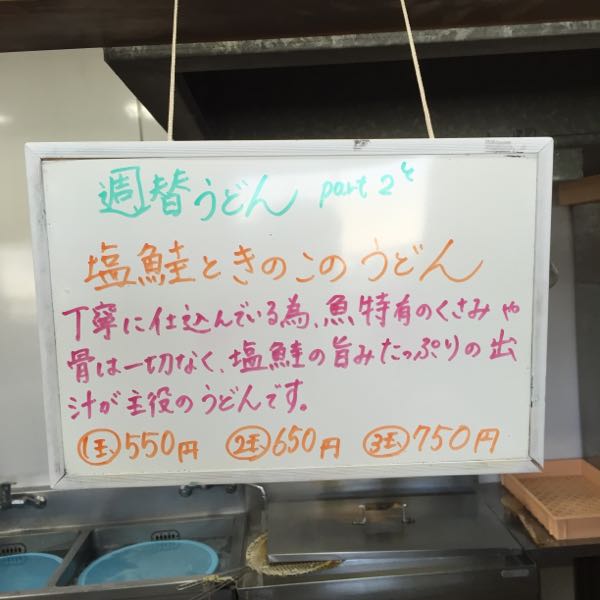 週替うどん part 2
塩鮭ときのこのうどん
丁寧に仕込んでいる為、魚特有のくさみや
骨は一切なく、塩鮭の旨みたっぷりの出
汁が主役のうどんです。
1玉550円 2玉650円 3玉750円